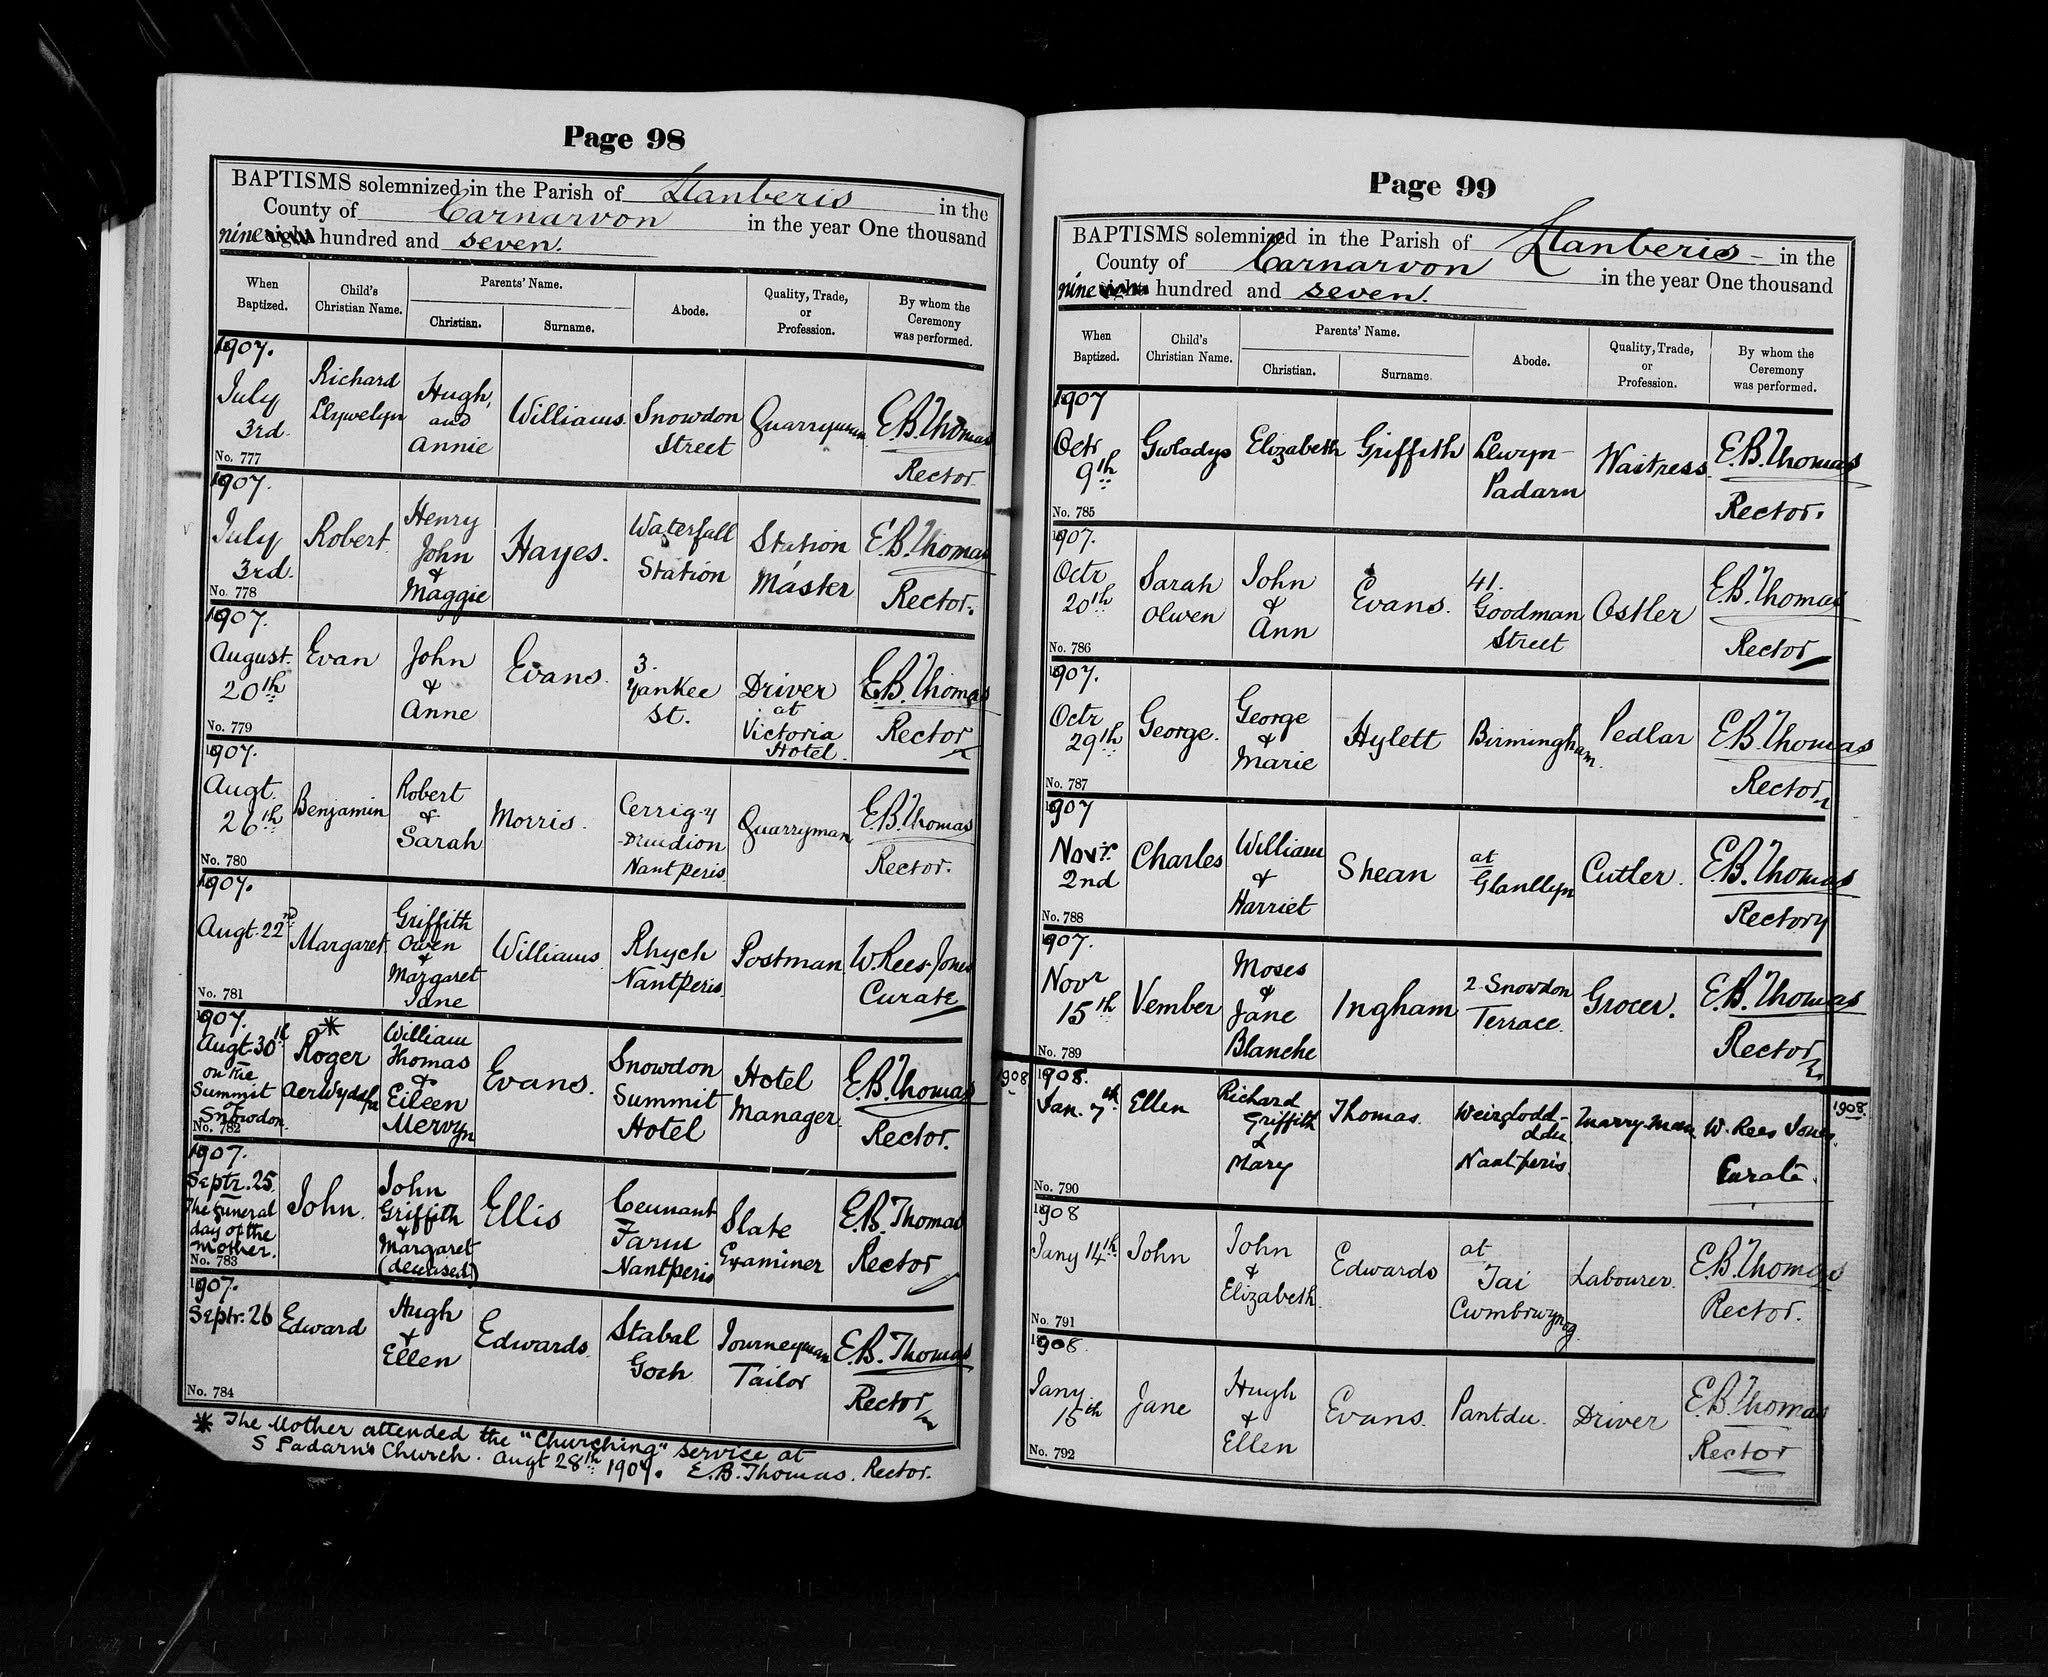 Page 98
BAPTISMS solemnized in the Parish of Llanberis in the
County of Carnarvon in the year One thousand
nine hundred and seven.
When Baptized. Child's Christian Name. Parents' Name. Christian. Surname. Abode. Quality, Trade, or Profession. By whom the Ceremony was performed.
1907. July 3rd. No. 777 Richard Llywelyn Hugh, and Annie Williams. Snowdon Street Quarryman E.B. Thomas Rector.
1907. July 3rd. No. 778 Robert Henry John & Maggie Hayes. Waterfall Station Station Master E.B. Thomas Rector.
1907. August. 20th No. 779 Evan John & Anne Evans. 3. Yankee St. Driver at Victoria Hotel. E.B. Thomas Rector
1907. Augt. 26th No. 780 Benjamin Robert & Sarah Morris. Cerrig-y Druidion Nantperis. Quarryman E.B. Thomas Rector.
1907. Augt. 22nd No. 781 Margaret. Griffith Owen & Margaret Jane Williams Rhych Nantperis. Postman W. Rees-Jones Curate
1907. Augt. 30th on the Summit of Snowdon. No. 782 * Roger Aerwyddfa William Thomas & Eileen Mervyn Evans. Snowdon Summit Hotel Hotel Manager. E.B. Thomas Rector.
1907. Septr. 25. The funeral day of the mother. No. 783 John. John Griffith & Margaret (deceased) Ellis Ceunant Farm Nantperis Slate Examiner E.B. Thomas Rector
1907. Septr. 26 No. 784 Edward Hugh & Ellen Edwards. Stabal Goch Journeyman Tailor E.B. Thomas Rector
* The Mother attended the "Churching" service at
S Padarn's Church. Augt 28th 1907. E.B. Thomas. Rector.
Page 99
BAPTISMS solemnized in the Parish of Llanberis in the
County of Carnarvon in the year One thousand
nine hundred and seven.
When Baptized. Child's Christian Name. Parents' Name. Christian. Surname. Abode. Quality, Trade, or Profession. By whom the Ceremony was performed.
1907 Octr 9th No. 785 Gwladys Elizabeth Griffith Llwyn-Padarn Waitress. E.B. Thomas Rector.
1907. Octr 20th No. 786 Sarah Olwen John & Ann Evans. 41. Goodman Street Ostler E.B. Thomas Rector
1907. Octr 29th No. 787 George. George & Marie Hylett Birmingham. Pedlar E.B. Thomas Rector
1907 Novr. 2nd No. 788 Charles William & Harriet Shean at Glanllyn Cutler. E.B. Thomas Rectory
1907. Novr 15th No. 789 Vember Moses & Jane Blanche Ingham 2. Snowdon Terrace. Grocer. E.B. Thomas Rector
1908 1908. Jan. 7th No. 790 Ellen Richard Griffith & Mary Thomas. Nantperis. W. Rees Jones. Curate. 1908.
1908 Jany 14th No. 791 John John & Elizabeth. Edwards at Tai Cwmbrwynog Labourer. E.B. Thomas Rector.
1908. Jany. 15th No. 792 Jane Hugh & Ellen Evans. Pantdu. Driver E.B. Thomas Rector